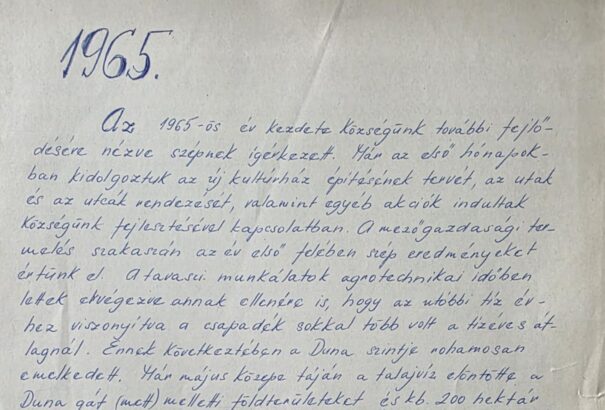 1965.
Az 1965-ös év kezdete Községünk további fejlő-
désére nézve szépnek igérkezett. Már az első hónapok-
ban kidolgoztuk az új kultúrház építésének tervét, az utak
és az utcák rendezését, valamint egyéb akciók indultak
Községünk fejlesztésével kapcsolatban. A mezőgazdasági ter-
melés szakaszán az év első felében szép eredményeket
értünk el. A tavaszi munkálatok agrotechnikai időben
lettek elvégezve annak ellenére is, hogy az utóbbi tíz év-
hez viszonyítva a csapadék sokkal több volt a tízéves át-
lagnál. Ennek következtében a Duna szintje rohamosan
emelkedett. Már május közepe táján a talajvíz elöntötte a
Duna gát (mett) melletti földterületeket és kb. 200 hektár